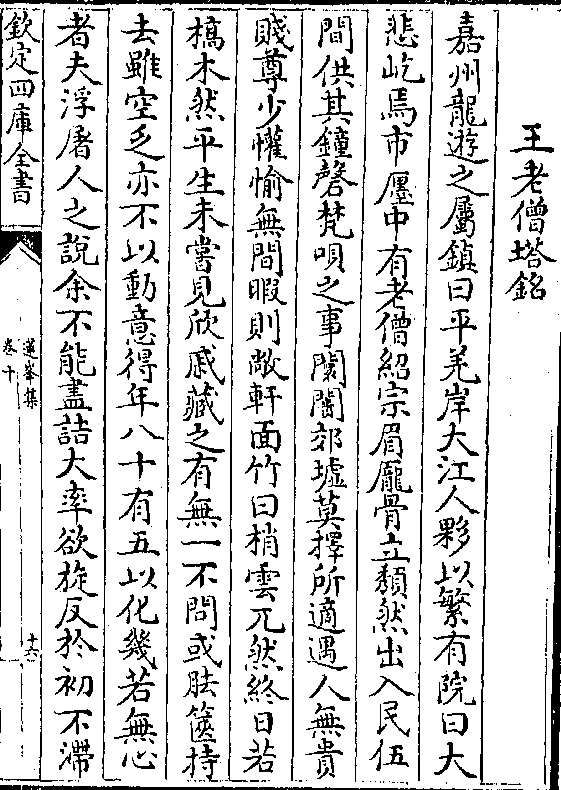 王老僧塔銘
嘉州龍遊之屬鎮曰平羌岸大江人夥以繁有院曰大
悲屹焉市廛中有老僧紹宗眉厖骨立頽然出入民伍
間供其鐘磬梵唄之事闤闠郊墟莫擇所適遇人無貴
賤尊少懽愉無間暇則敞軒面竹曰梢雲兀然終日若
槁木然平生未嘗見欣戚藏之有無一不問或胠篋持
去雖空乏亦不以動意得年八十有五以化幾若無心
者夫浮屠人之說余不能盡詰大率欲旋反於初不滯
欽定四庫全書
蓮峯集
卷十
十六